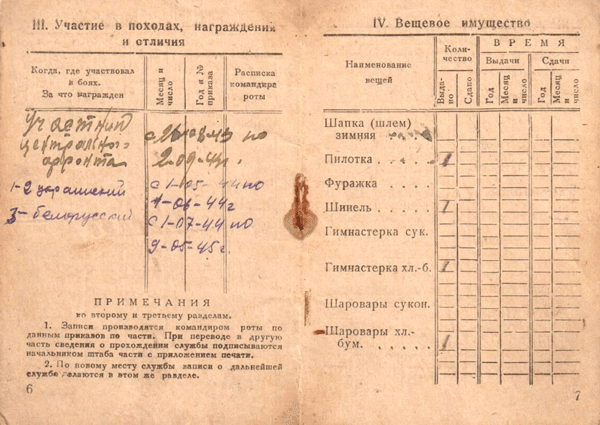 III. Участие в походах, награждения
и отличия
Когда, где участвовал
в боях.
За что награжден
Месяц и
число
Год и №
приказа
Расписка
командира
роты
Участник
центрального
фронта
2-09-44г.
1-2 украинский
с 1-05-44 по
1-06-44г
3-белорусский
с 1-07-44 по
9-05-45г.
ПРИМЕЧАНИЯ
ко второму и третьему разделам.
1. Записи производятся командиром роты по
данным приказов по части. При переводе в другую
часть сведения о прохождения службы подписываются
начальником штаба части с приложением печати.
2. По новому месту службы записи о дальнейшей
службе делаются в этом же разделе.
6
IV. Вещевое имущество
Наименование
вещей
Коли-
чество
Выда-
но
Сдано
ВРЕМЯ
Выдачи
Сдачи
Год
Месяц
и число
Год
Месяц
и число
Шапка (шлем)
зимняя
Пилотка . . . . 1
Фуражка . . . .
Шинель . . . . 1
Гимнастерка сук.
Гимнастерка хл.-б. 1
Шаровары сукон.
Шаровары хл.-
бум. . . . . . 1
7